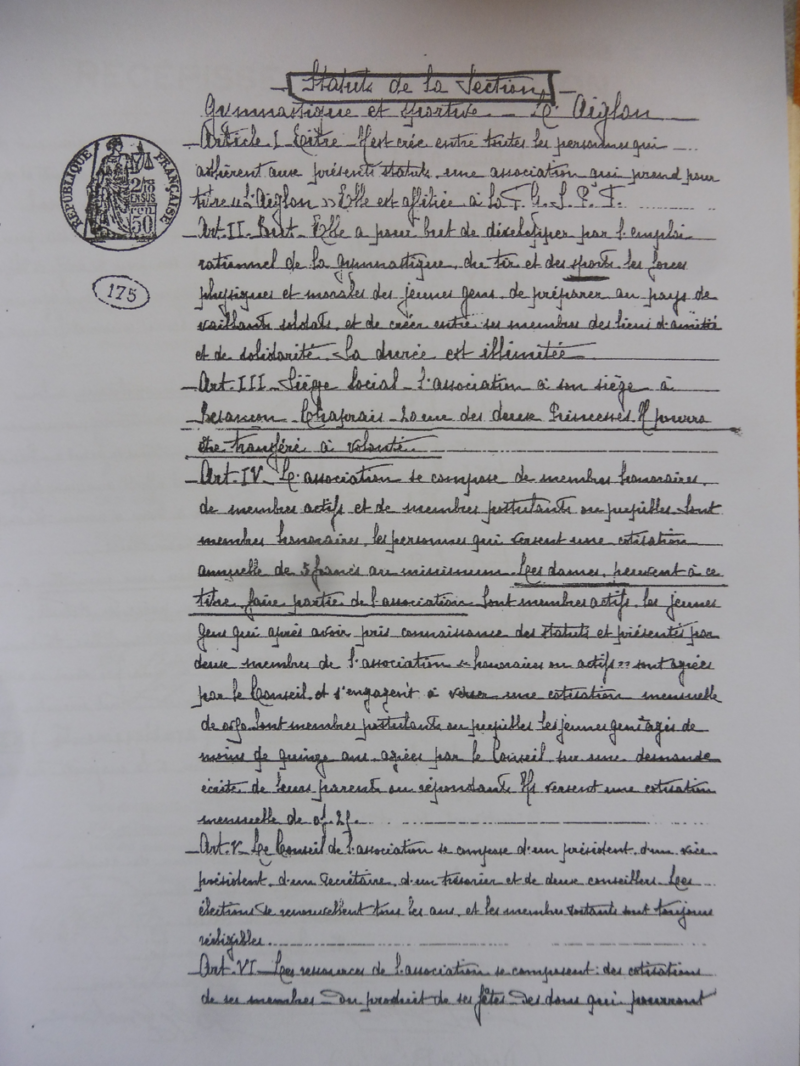 Statuts de la Section
Gymnastique et Sportive - L'Aiglon
Article I. Titre - Il est crée entre toutes les personnes qui
adhèrent aux présents statuts, une association qui prend pour
titre « L'Aiglon » Elle est affiliée à la F. G. S. P. F.
Art. II. But - Elle a pour but de développer par l'emploi
rationnel de la gymnastique, du tir et des sports les forces
physiques et morales des jeunes gens, de préparer au pays de
vaillants soldats, et de créer entre ses membres des liens d'amitié
et de solidarité. Sa durée est illimitée
Art. III - Siège Social - L'association a son siège à
Besançon - Chaprais - rue des deux Princesses. Il pourra
être transféré à volonté
Art. IV - L'association se compose de membres honoraires,
de membres actifs et de membres postulants ou pupilles. Sont
membres honoraires, les personnes qui versent une cotisation
annuelle de 5 francs au minimum. Les dames, peuvent à ce
titre, faire partie de l'association. Sont membres actifs, les jeunes
gens qui après avoir pris connaissance des statuts et présentés par
deux membres de l'association « honoraires ou actifs » sont agréés
par le Conseil, et s'engagent à verser une cotisation mensuelle
de Sont membres postulants ou pupilles les jeunes gens agés de
moins de quinze ans, agréés par le Conseil sur une demande
écrite de leurs parents ou répondants. Ils versent une cotisation
mensuelle de
Art. V - Le Conseil de l'association se compose d'un président, d'un vice
président, d'un secrétaire, d'un trésorier et de deux conseillers. Les
élections se renouvellent tous les ans, et les membres sortants sont toujours
rééligibles.
Art. VI - Les ressources de l'association se composent : des cotisations
de ses membres - du produit de ses fêtes - des dons qui pourront
RÉPUBLIQUE FRANÇAISE
50
175